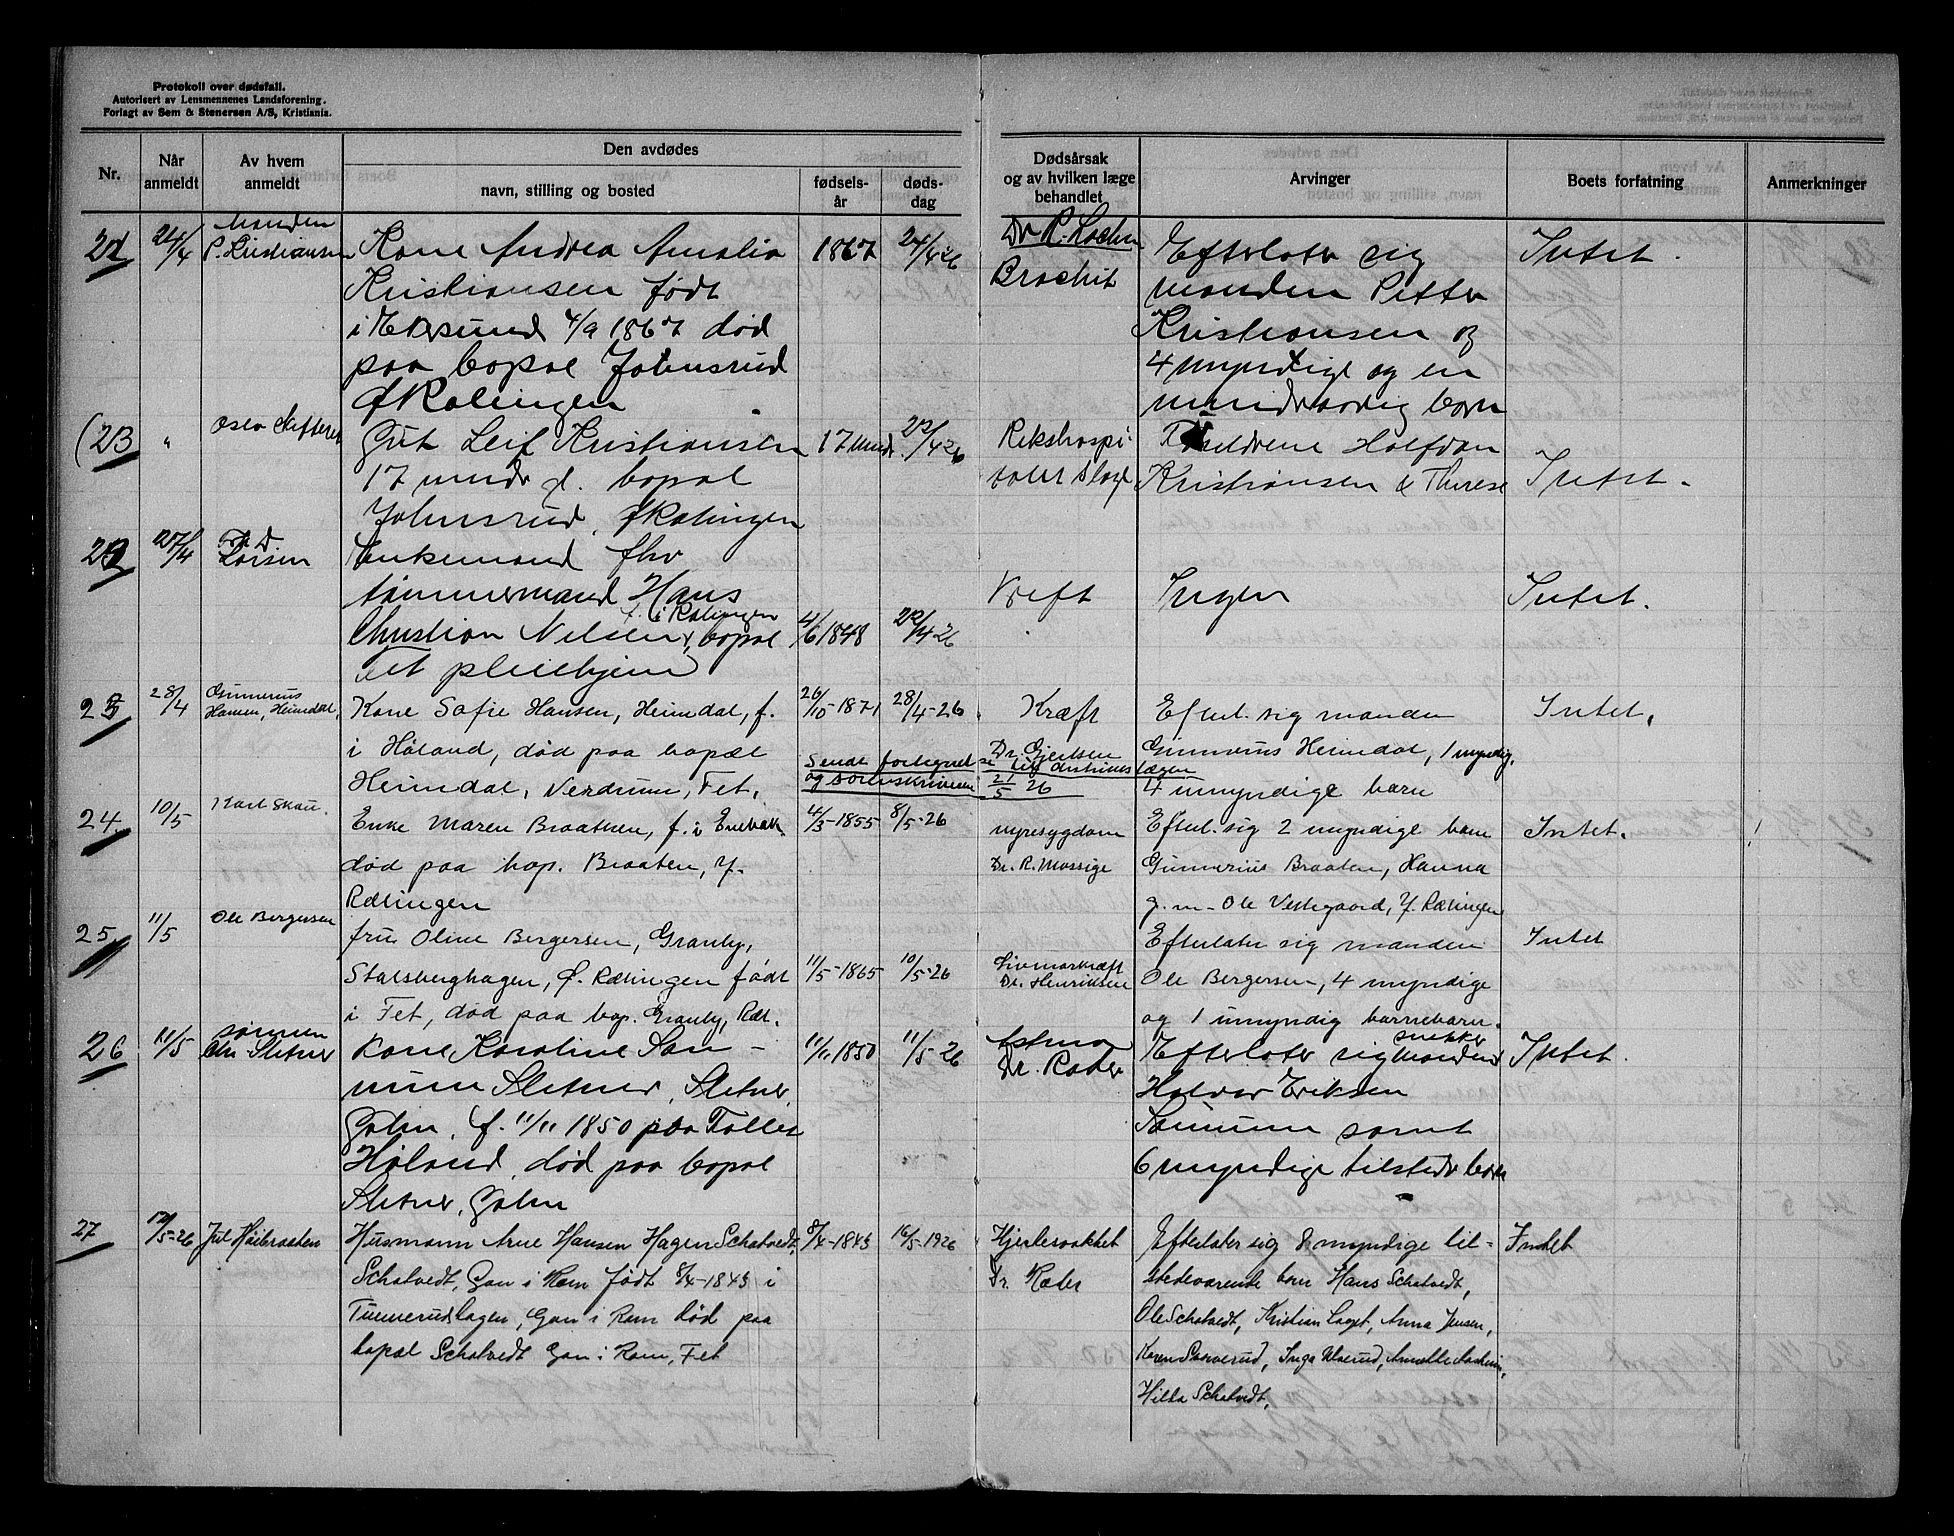 Protokoll over dødsfall.
Autorisert av Lensmennenes Landsforening.
Forlagt av Sem & Stenersen A/S, Kristiania.
Nr.
Når anmeldt
Av hvem anmeldt
Den avdødes
navn, stilling og bosted
fødsels-år
døds-dag
Dødsårsak og av hvilken læge behandlet
Arvinger
Boets forfatning
Anmerkninger
21
24/4
Manden
P. Kristiansen
Kone Andrea Amalia
Kristiansen født
i Ekersund 4/9 1867 død
paa bopæl Johnsrud
Ø Rælingen
1867
24/4 26
Brochit
Efterlater sig
manden Petter
Kristiansen og
4 myndige og en
mindreaarig barn
Intet.
(23
"
Oslo skifteret
Gut Leif Kristiansen
17 mndr gl. bopæl
Johnsrud, Ø Rælingen
17 mndr.
22/4 26
Rikshospi-
talet Oslo
Forældrene Halfdan
Kristiansen & Therese
Intet.
22
27/4
Larsen
Enkemand fhv
tømmermand Hans
f. i Rælingen
Christian Nilsen, bopæl
Fet pleiehjem
4/6 1848
22/4-26
Kreft
Ingen
Intet.
23
28/4
Gunnerius
Hansen, Heimdal,
Kone Sofie Hansen, Heimdal, f.
i Høland, død paa bopæl
Heimdal, Nerdrum, Fet,
26/10-1871
28/4-26
Kræft
Dr. Gjertsen
Sendt fortegnelse til distriktslægen
og sorenskriveren 21/5 26
Efterl. sig manden
Gunnerius Heimdal, 1 myndig,
4 umyndige barn
Intet.
24
10/5
Karl Skau
Enke Maren Braathen, f. i Enebak
død paa bop. Braaten, Y.
Rælingen
4/3-1855
8/5-26
nyresygdom
Dr. R. Mossige
Efterl. sig 2 myndige barn
Gunnerius Braaten, Hanna
g.m. Ole Vestegaard, Y. Rælingen
Intet.
25
11/5
Ole Bergersen
fru Oline Bergersen, Granby,
Stalsberghagen, Ø. Rælingen født
i Fet, død paa bop. Granby, Ræl.
11/5-1865
10/5-26
Livmorkræft
Dr. Henriksen
Efterlater sig manden
Ole Bergersen, 4 myndige
og 1 umyndig barnebarn.
Intet
26
11/5
sønnen
Chr. Sletner
Kone Karoline San-
num Sletner, Sletner,
Galm, f. 11/11 1850 paa
Høland, død paa bopæl
Sletner, Galm
11/11 1850
11/5-26
Astma
Dr. Räder
snekker
Efterlater sig manden
Halvor Eriksen
Sannum samt
6 myndige tilstedev barn
Intet.
27
Jul Høibraaten
Husmann Arne Hansen Hagen Schalvedt,
Schalvedt, Gan i Ram født 8/4-1843 i
Tunnerudhagen, Gan i Ram død paa
bopæl Schalvedt Gan i Ram, Fet
8/4-1843
16/5-1926
Hjerteonkket
Dr. Ræder
Efterlater sig 8 myndige til-
stedeværende barn Hans Schalvedt,
Ole Schalvedt, Kristian Laget, Anna Jensen,
Karen
Hilda Schalvedt,
Intet